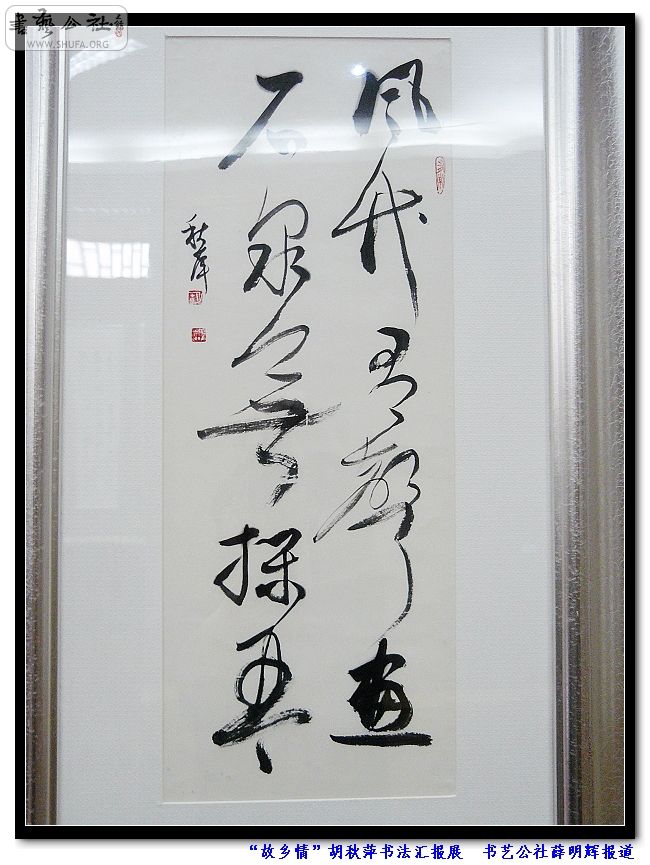 書藝公社
WWW.SHUFA.ORG
風竹有聲畫
石泉無操琴
秋萍
“故乡情”胡秋萍书法汇报展 书艺公社薛明辉报道